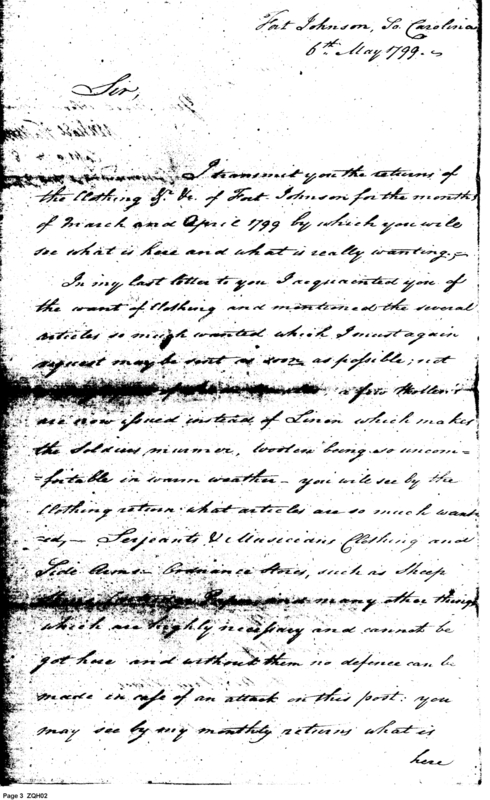 Fort Johnson, So. Carolina
6th May 1799.
Sir,
I transmit you the returns of
the Clothing &c. &c. of Fort Johnson for the months
of March and April 1799 by which you will
see what is here and what is really wanting.
In my last letter to you I acquaented you of
the want of Clothing and mentioned the several
articles so much wanted which I must again
request may be sent as soon as possible; not
a few Wollen's
are now issued instead of Linen which makes
the Soldiers murmer, Woolen being so uncom=
=fortable in warm weather – you will see by the
Clothing return what articles are so much want
=ed, – Serjeants & Musicians Clothing and
Side Arms – Ordnance Stores, such as Sheep
Paper and many other things
which are highly necessary and cannot be
got here and without them no defence can be
made in case of an attack on this post: you
may see by my monthly returns what is
here
Page 3 ZQH02